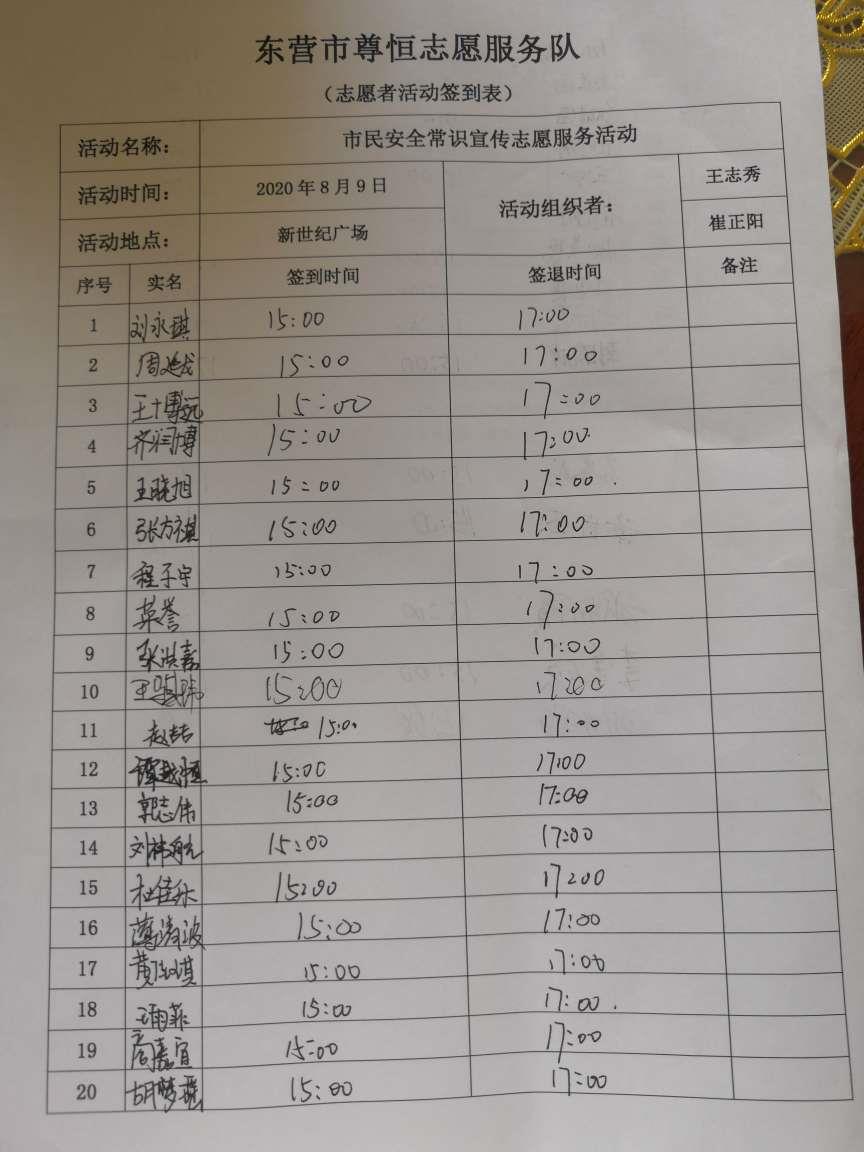 东营市尊恒志愿服务队
（志愿者活动签到表）
活动名称： 市民安全常识宣传志愿服务活动
活动时间： 2020年8月9日 活动组织者： 王志秀
活动地点： 新世纪广场 崔正阳
序号 实名 签到时间 签退时间 备注
1 刘永琪 15:00 17:00
2 15:00 17:00
3 15:00 17:00
4 齐润博 15:00 17:00
5 王晓旭 15:00 17:00
6 张方祺 15:00 17:00
7 程子宇 15:00 17:00
8 英誉 15:00 17:00
9 张洪嘉 15:00 17:00
10 15:00 17:00
11 赵喆 15:00 17:00
12 谭越恒 15:00 17:00
13 郭志伟 15:00 17:00
14 刘祎航 15:00 17:00
15 杜佳乐 15:00 17:00
16 15:00 17:00
17 15:00 17:00
18 王雨菲 15:00 17:00
19 高嘉宜 15:00 17:00
20 胡梦瑶 15:00 17:00